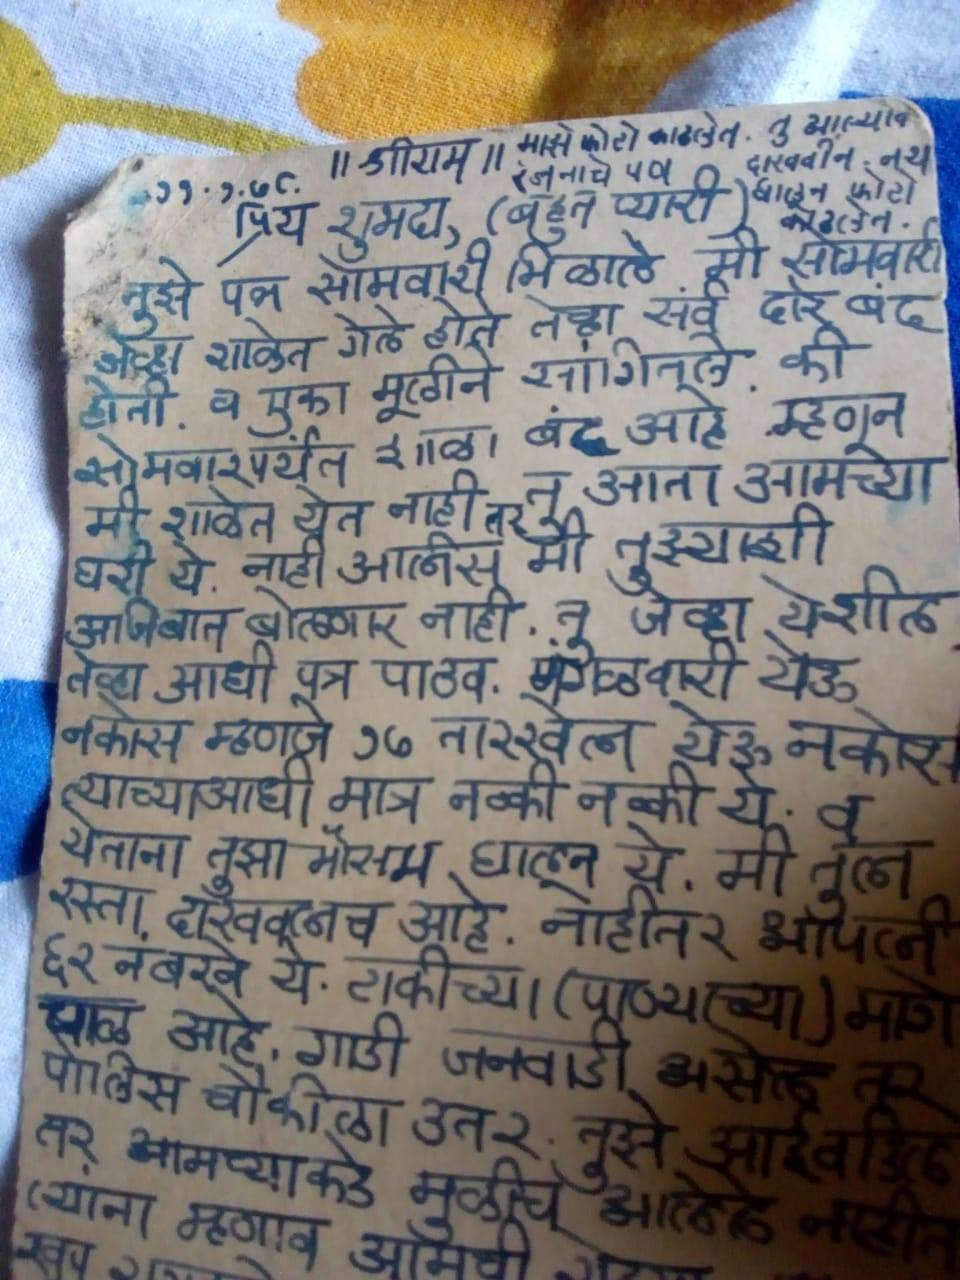 ॥ श्रीराम ॥ माझे फोटो काढलेत. तु आल्यावर
दाखवीन. नथ
रंजनाचे पत्र घालून फोटो
काढलेत.
११.१.७८.
प्रिय शुभदा, (बहुत प्यारी)
तुझे पत्र सोमवारी मिळाले. मी सोमवारी
जेव्हा शाळेत गेले होते तेव्हा सर्व दारे बंद
होती. व एका मूलीने सांगितले. की
सोमवारपर्यंत शाळा बंद आहे म्हणून
मी शाळेत येत नाही तर तु आता आमच्या
घरी ये. नाही आलीस मी तुझ्याशी
अजिबात बोलणार नाही. तु जेव्हा येशील
तेव्हा आधी पत्र पाठव. मंगळवारी येऊ
नकोस म्हणजे १७ तारखेला येऊ नकोस
त्याच्याआधी मात्र नक्की नक्की ये. व
येताना तुझा मॅक्सी घालून ये. मी तुला
रस्ता दाखवलाच आहे. नाहीतर
६२ नंबरने ये. टाकीच्या (पाण्याच्या) मागे
चाळ आहे. गाडी जनवाडी असेल तर
पोलिस चौकीला उतर. तुझे आईवडिल
तर आमच्याकडे मुळीच आलेले नाहीत
त्यांना म्हणाव आमची
खूप